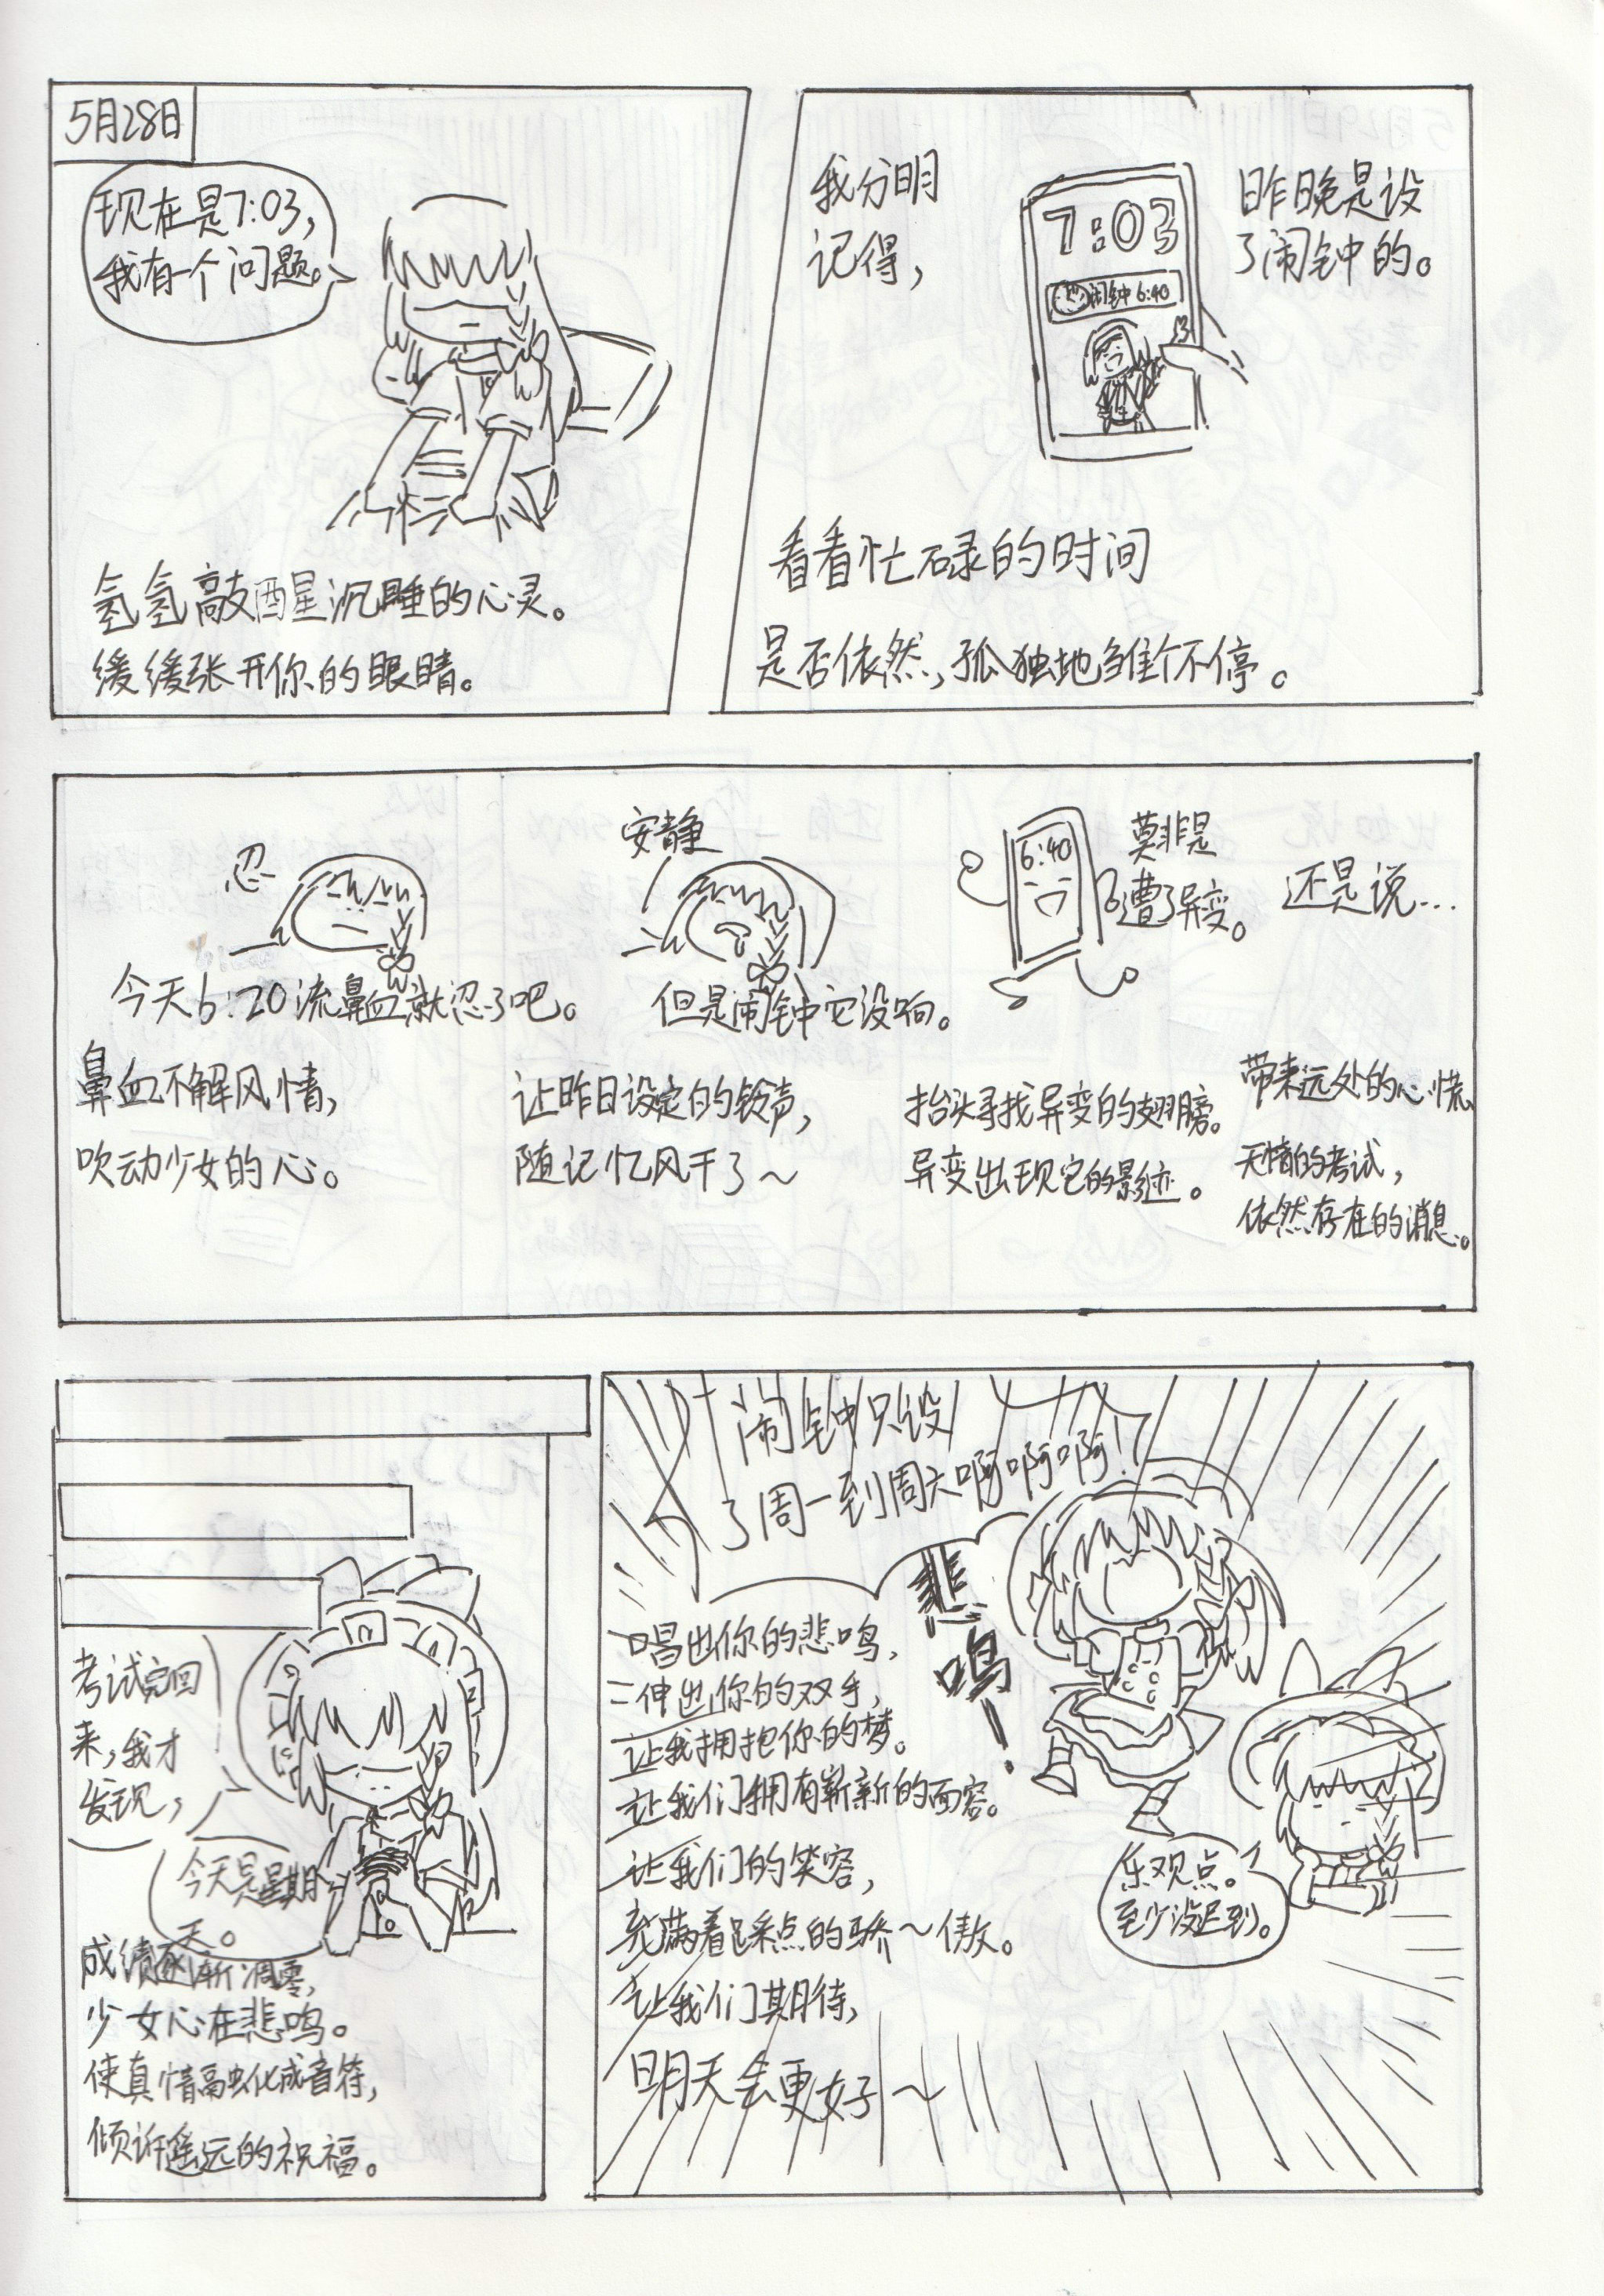 5月28日
现在是7:03,
我有一个问题。
氢氢敲醒沉睡的心灵。
缓缓张开你的眼睛。
我分明
记得,
7:03
闹钟 6:40
昨晚是设
了闹钟的。
看看忙碌的时间
是否依然,孤独地
不停。
忍
今天6:20流鼻血就忍了吧。
鼻血不解风情,
吹动少女的心。
安静
但是闹钟它没响。
让昨日设定的铃声,
随记忆风干了~
6:40
莫非是
遭了异变。
抬头寻找异变的翅膀。
异变出现它的影迹。
还是说...
带来远处的心慌,
无情的考试,
依然存在的消息。
考试完回
来,我才
发现,
今天是星期
天。
成绩逐渐凋零,
少女心在悲鸣。
使真情融化成音符,
倾诉遥远的祝福。
闹钟只设
了周一到周六啊啊啊!
悲鸣!
唱出你的悲鸣,
伸出你的双手,
让我拥抱你的梦。
让我们拥有崭新的面容。
让我们的笑容,
充满着踩点的骄~傲。
让我们期待,
明天会更好~
乐观点。
至少没迟到。